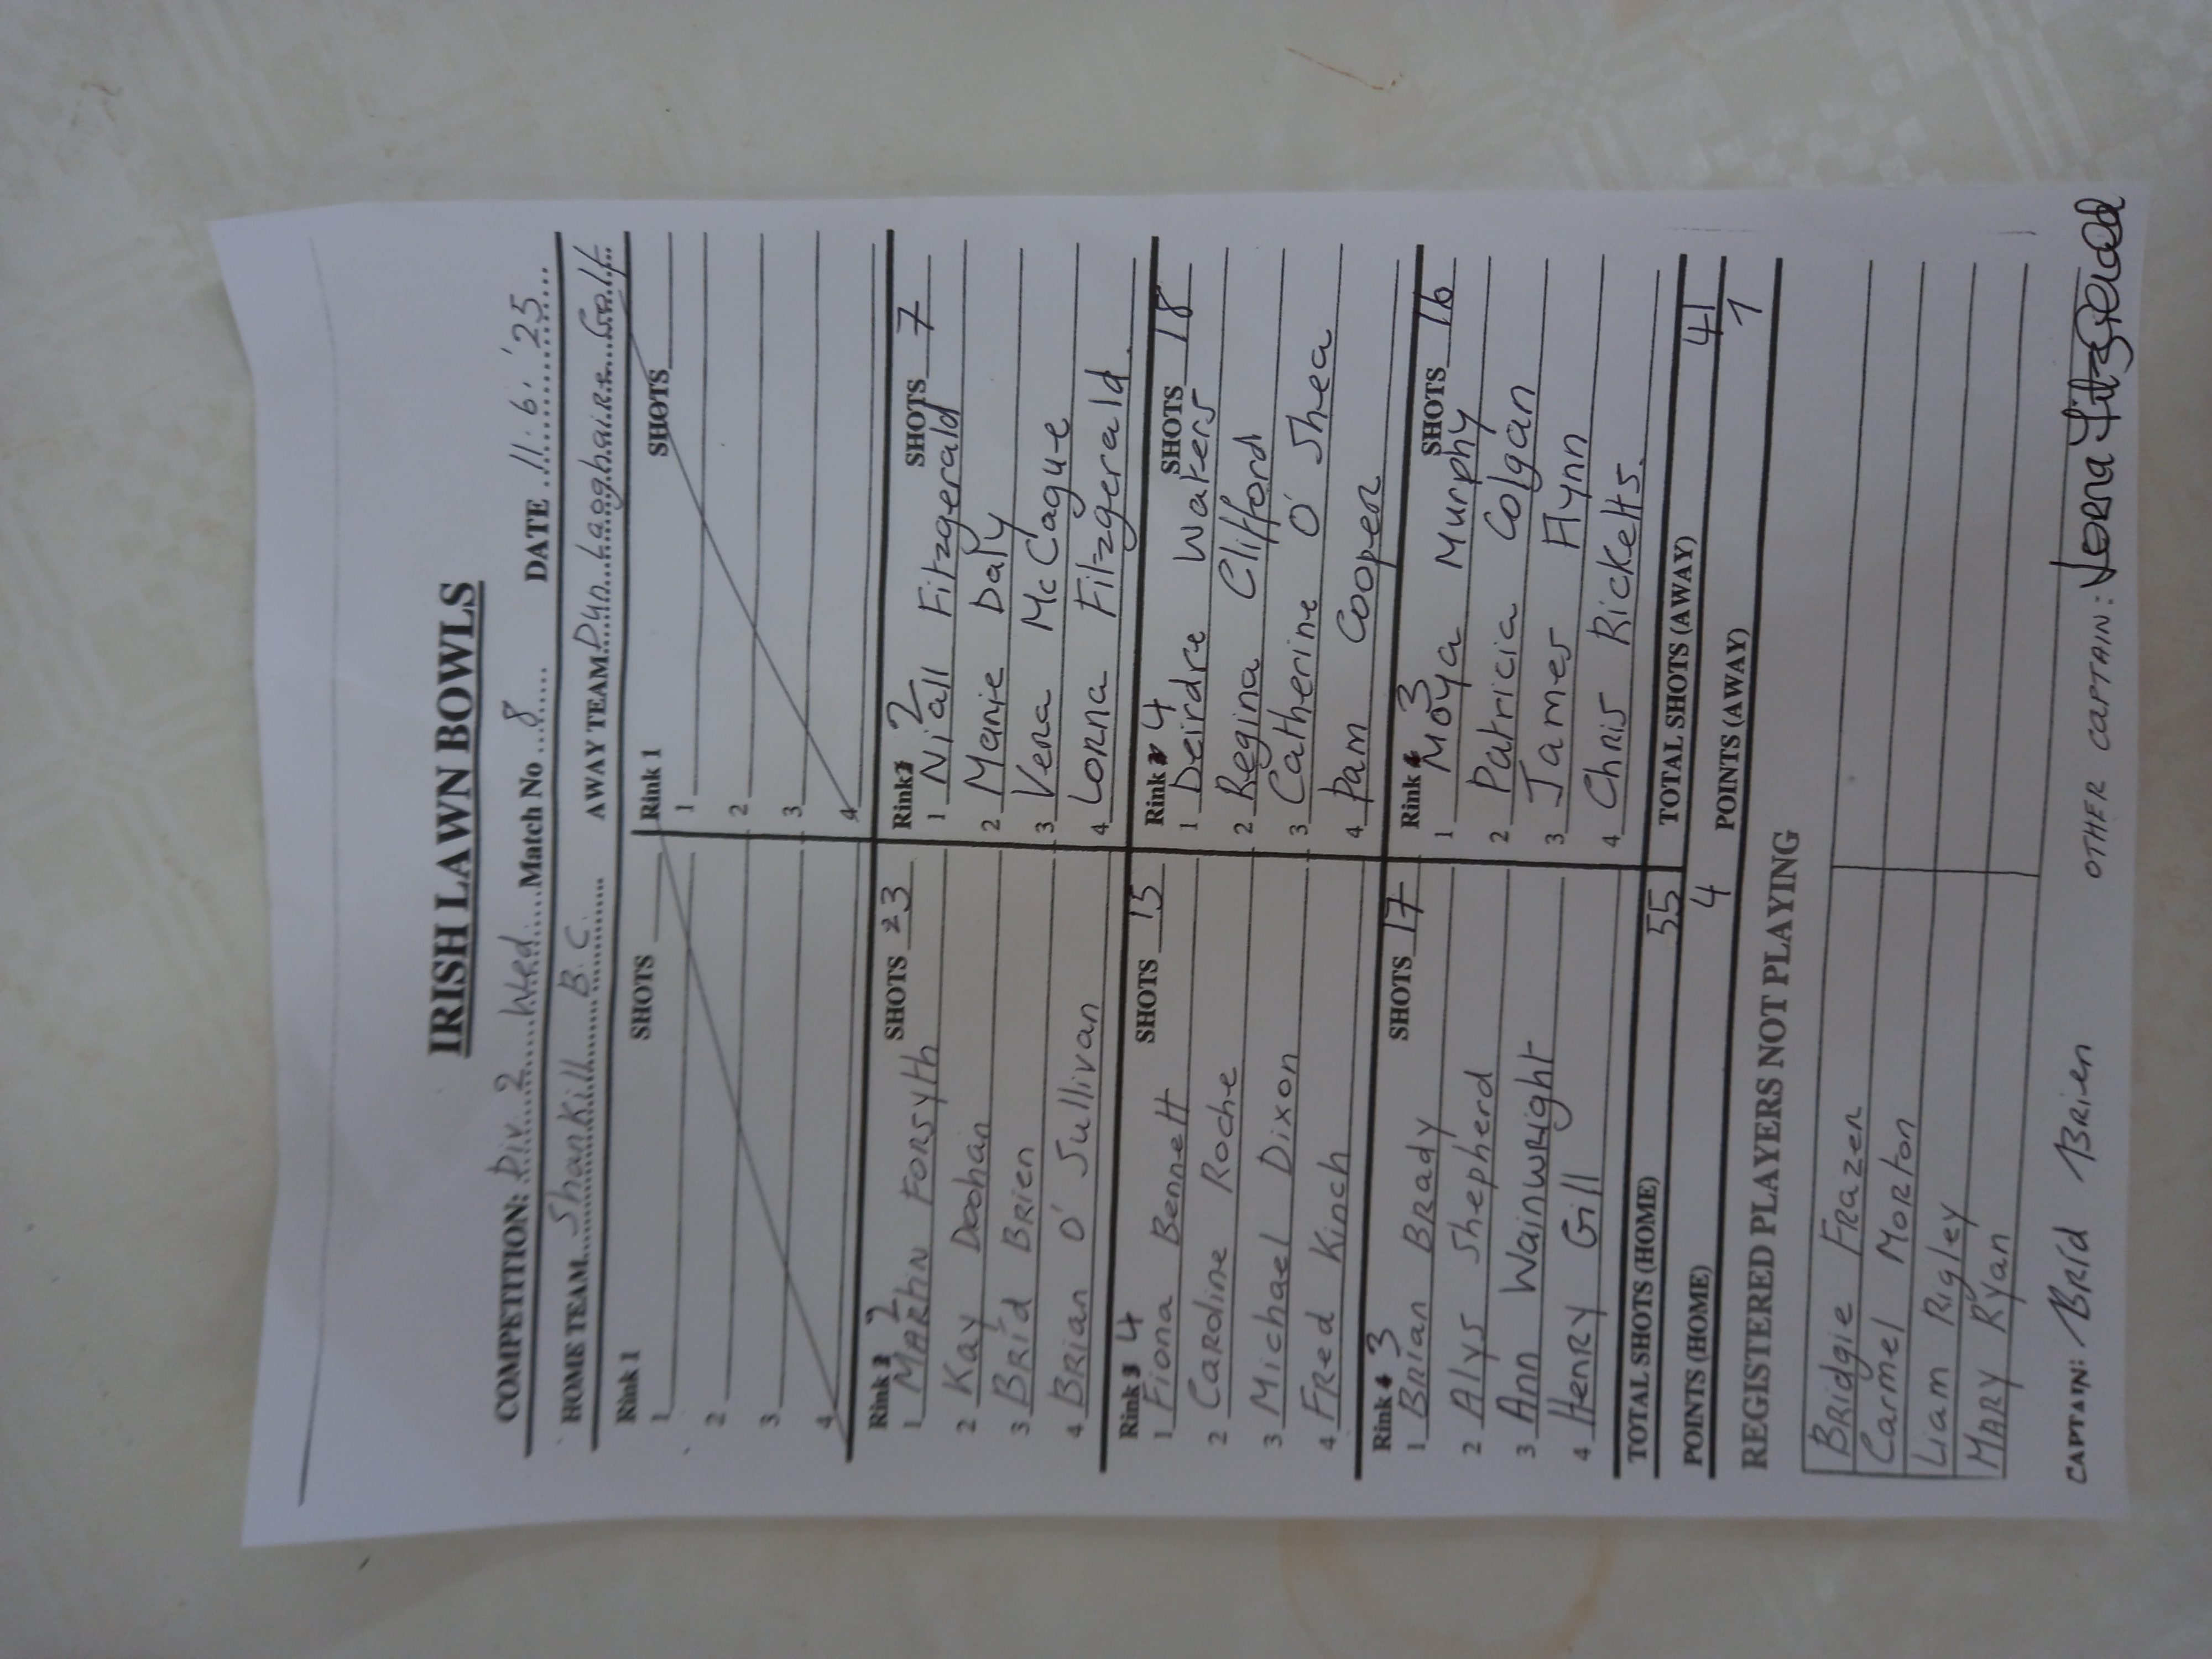 IRISH LAWN BOWLS
COMPETITION: Div. 2 Wed Match No 8 DATE 11.6.'25
HOME TEAM Shankill B.C. AWAY TEAM Dun Laoghaire Golf
Rink 1 SHOTS
1
2
3
4
Rink 1 SHOTS
1
2
3
4
Rink 2 SHOTS 23
1 MARTIN FORSYTH
2 Kay Doohan
3 BRíd BRIEN
4 BRIAN O' Sullivan
Rink 2 SHOTS 7
1 Niall Fitzgerald
2 Marie Daly
3 Vera McCague
4 LORNA Fitzgerald.
Rink 4 SHOTS 15
1 Fiona Bennett
2 CAROLINE ROCHE
3 Michael Dixon
4 FRed Kinch
Rink 4 SHOTS 18
1 Deirdre Waters
2 Regina Clifford
3 Catherine O' Shea
4 Pam Cooper
Rink 3 SHOTS 17
1 BRIAN BRADY
2 Alys Shepherd
3 Ann WainwRight
4 HENRY Gill
Rink 3 SHOTS 16
1 Moya Murphy
2 Patricia Colgan
3 James Flynn
4 Chris Ricketts.
TOTAL SHOTS (HOME) 55 TOTAL SHOTS (AWAY) 41
POINTS (HOME) 4 POINTS (AWAY) 1
REGISTERED PLAYERS NOT PLAYING
BRidgie FRAZER
Carmel MORTON
Liam Rigley
MARY RYan
CAPTAIN: BRíd BRIEN OTHER CAPTAIN: Lorna Fitzgerald